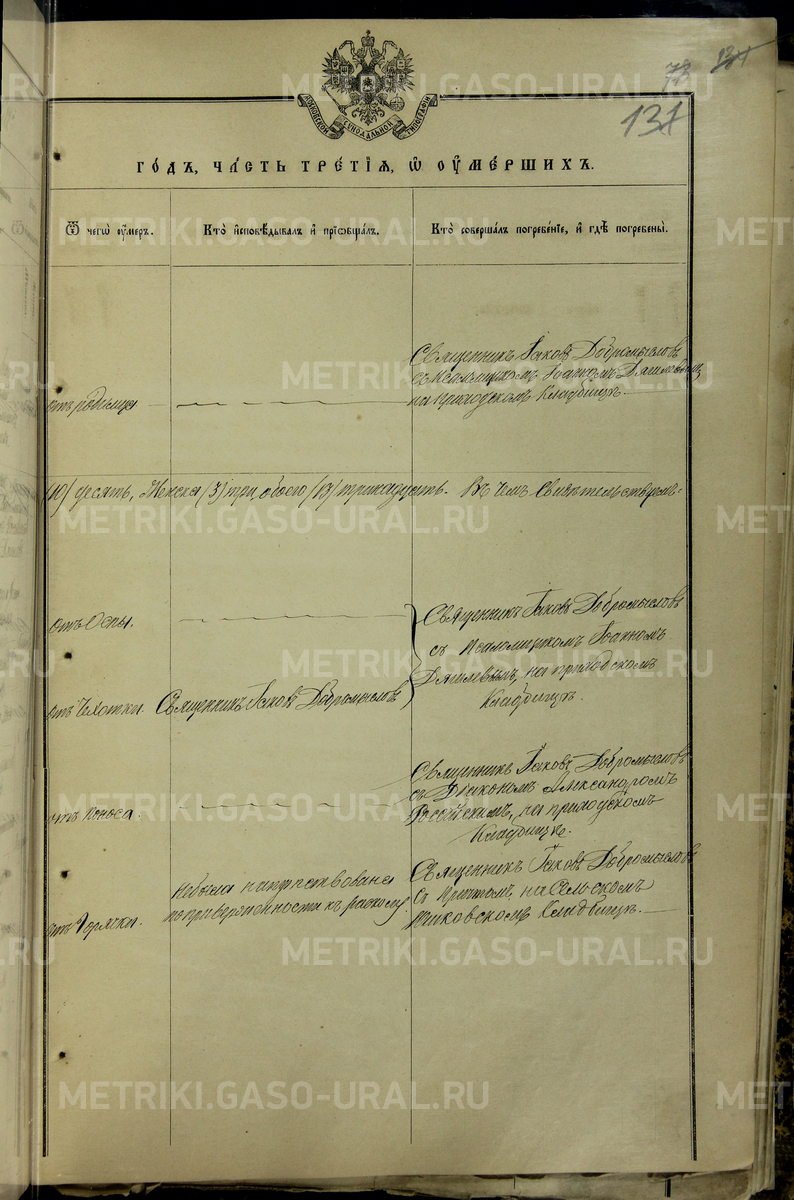 73 131
137
МОСКОВСКОЙ СѴНОДАЛЬНОЙ ТИПОГРАФІИ
ГОДЪ, ЧАСТЬ ТРЕТІЯ, Ѡ ОУМЕРШИХЪ.
Ѿ чегѡ оумеръ.
Кто исповѣдывалъ и прїѡбщалъ.
Кто совершалъ погребенїе, и гдѣ погребены.
отъ родимца
Священникъ Іаковъ Добромысловъ
съ Псаломщикомъ Іоанномъ
на приходскомъ Кладбищѣ.
(10) десять, Женска (3) три, обоего (13) тринадцать. Въ чемъ Свидѣтельствуемъ:
отъ Оспы.
Священникъ Іаковъ Добромысловъ
съ Псаломщикомъ Іоанномъ
на приходскомъ
Кладбищѣ.
отъ Чахотки. Священникъ Іаковъ Добромысловъ
отъ Поноса.
Священникъ Іаковъ Добромысловъ
съ Діакономъ Александромъ
на приходскомъ
Кладбищѣ.
отъ Горячки.
Небыла напутствована
по приверженности къ расколу
Священникъ Іаковъ Добромысловъ
съ Причтомъ, на Сельскомъ
Кладбищѣ.
METRIKI.GASO-URAL.RU